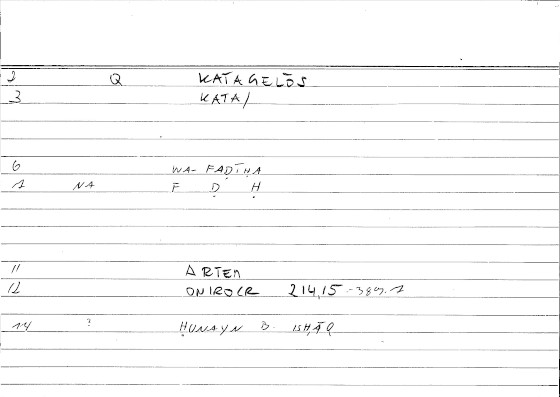 2 Q KATAGELŌS
3 KATA/
6 WA- FAḌĪḤA
1 NA F Ḍ Ḥ
11 ARTEM
12 ONIROCR 214,15 -389.1
14 ? ḤUNAYN B. ISḤĀQ